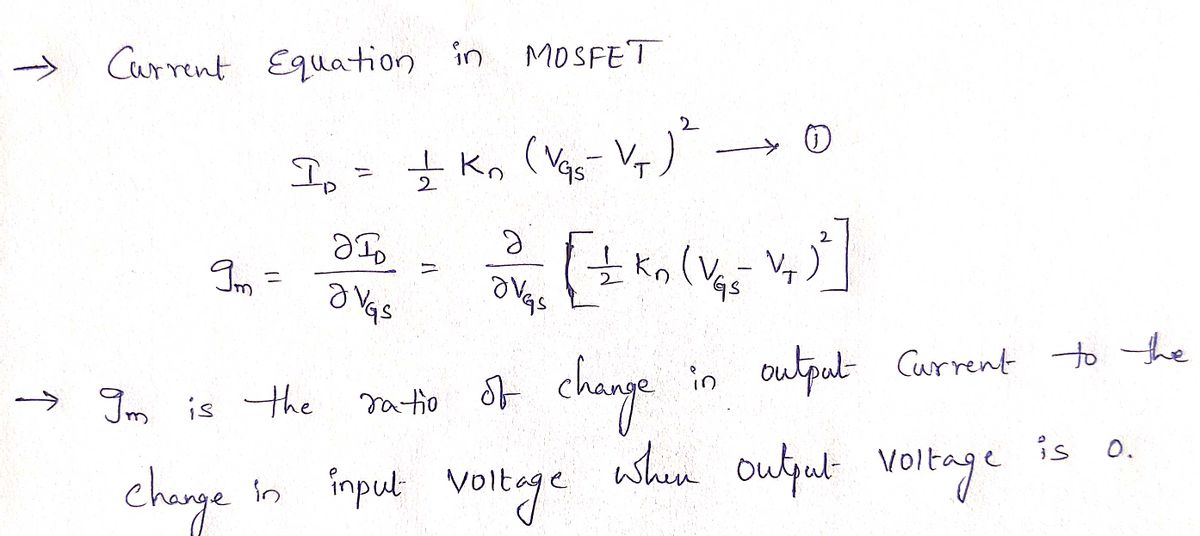 → Current Equation in MOSFET
I_D = 1/2 K_n (V_GS - V_T)² → ①
g_m = ∂I_D/∂V_GS = ∂/∂V_GS [1/2 K_n (V_GS - V_T)²]
→ g_m is the ratio of change in output Current to the
change in input voltage when output voltage is 0.